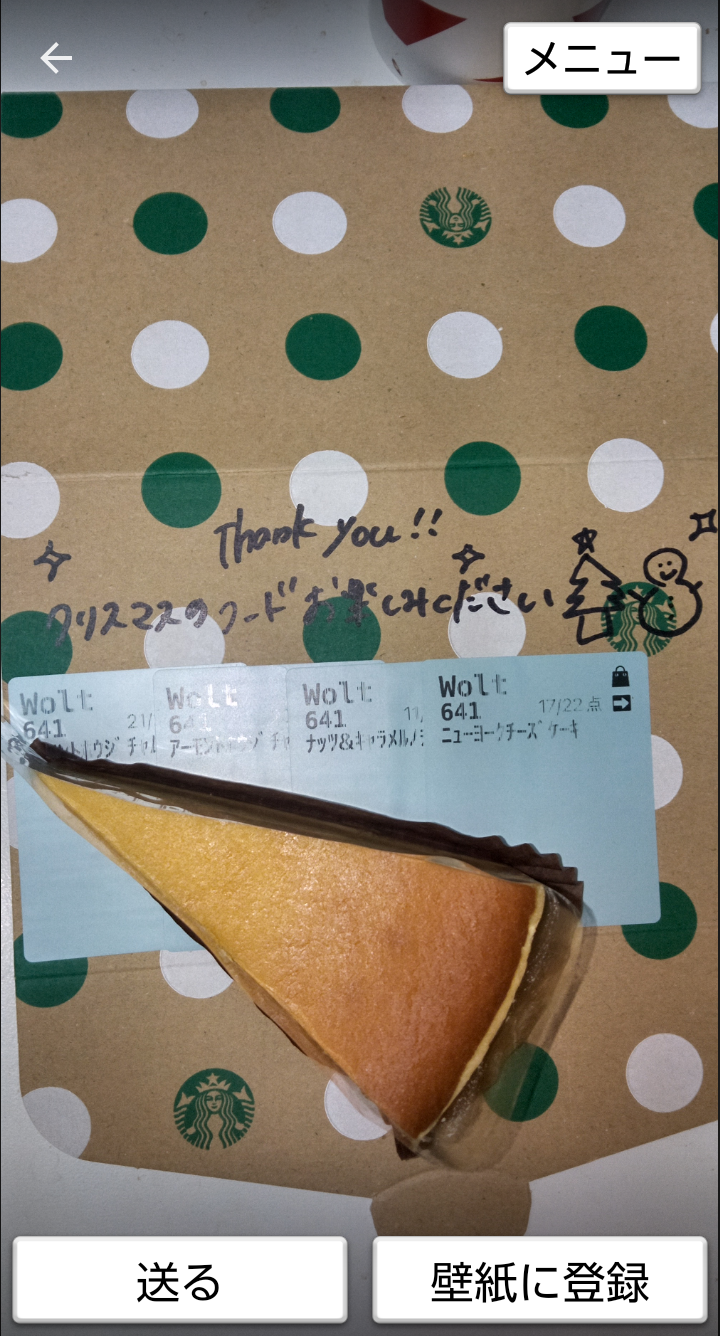 メニュー
Thank you!!
クリスマスのフードお楽しみください
Wolt
641
21/
ウジ チャ
Wolt
6
アーモント
Wolt
641
11
ナッツ&キャラメル
Wolt
641
17/22点
ニューヨークチーズケーキ
送る
壁紙に登録